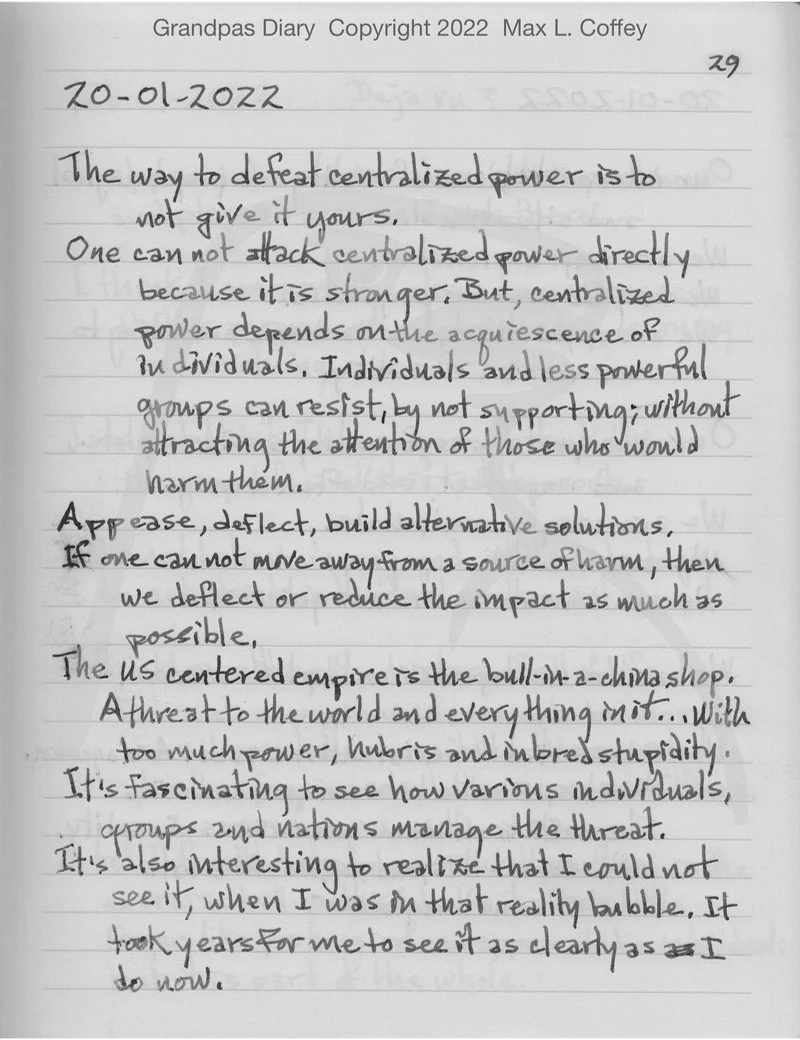 Grandpas Diary Copyright 2022 Max L. Coffey
29
20-01-2022
The way to defeat centralized power is to
not give it yours.
One can not attack centralized power directly
because it is stronger. But, centralized
power depends on the acquiescence of
individuals. Individuals and less powerful
groups can resist, by not supporting; without
attracting the attention of those who would
harm them.
Appease, deflect, build alternative solutions.
If one can not move away from a source of harm, then
we deflect or reduce the impact as much as
possible.
The US centered empire is the bull-in-a-china shop.
A threat to the world and everything in it... With
too much power, hubris and inbred stupidity.
It's fascinating to see how various individuals,
groups and nations manage the threat.
It's also interesting to realize that I could not
see it, when I was in that reality bubble. It
took years for me to see it as clearly as I
do now.